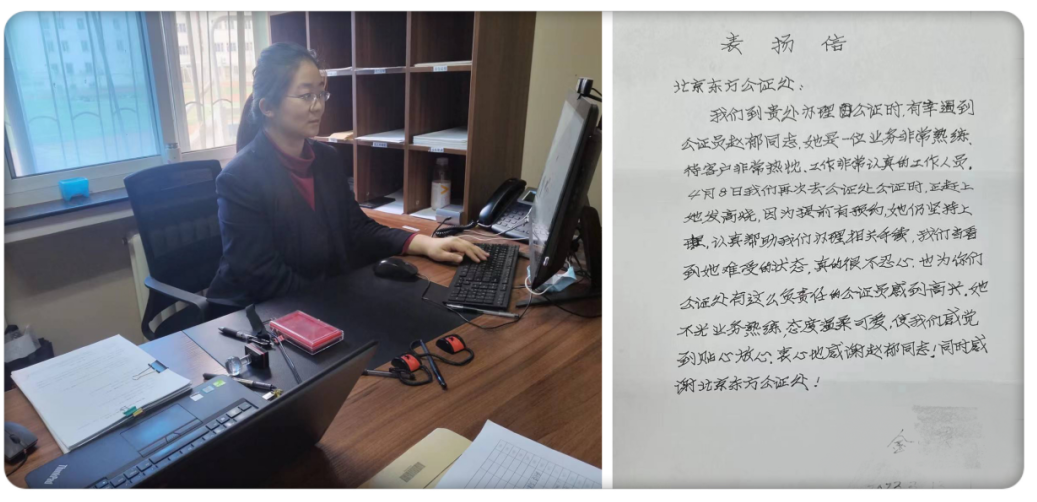 表扬信
北京东方公证处：
我们到贵处办理公证时,有幸遇到
公证员赵郁同志,她是一位业务非常熟练、
待客户非常热忱、工作非常认真的工作人员。
4月8日我们再次去公证处公证时,正赶上
她发高烧,因为提前有预约,她仍坚持上
班,认真帮助我们办理相关手续,我们当看
到她难受的状态,真的很不忍心,也为你们
公证处有这么负责任的公证员感到高兴。她
不光业务熟练,态度温柔可爱,使我们感觉
到贴心放心。衷心地感谢赵郁同志!同时感
谢北京东方公证处!
金
ThinkPad